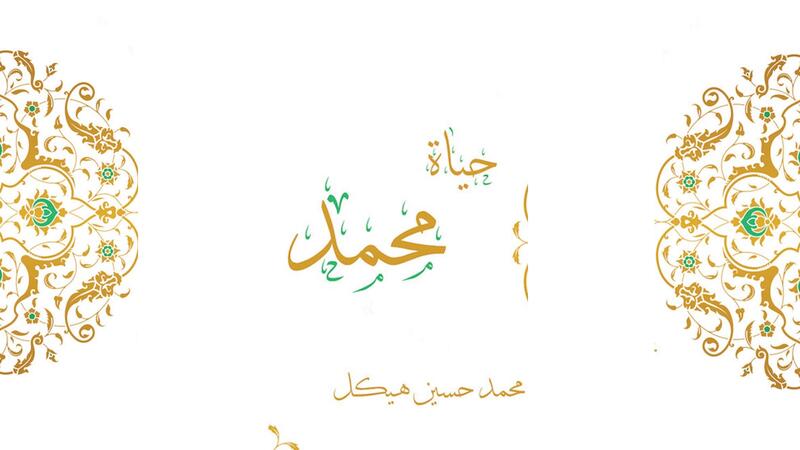 حياة
محمد
محمد حسين هيكل